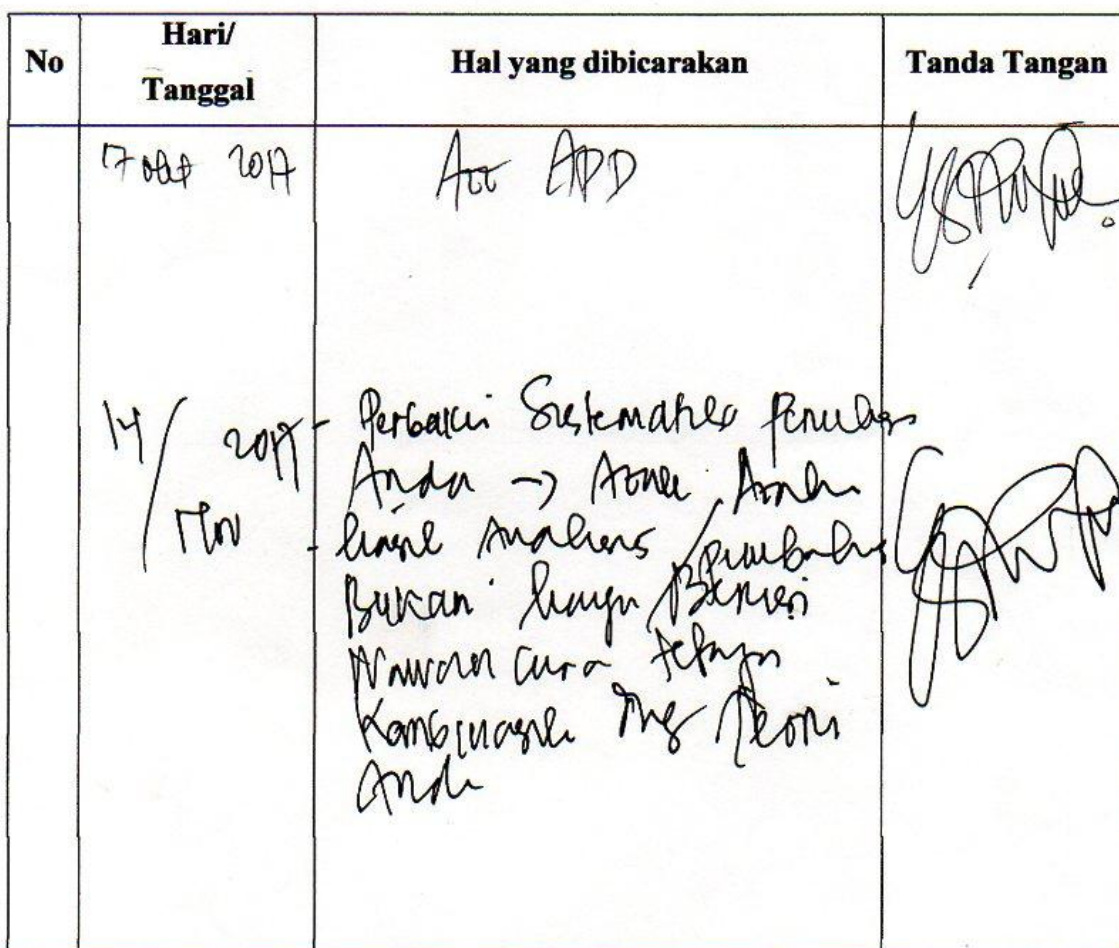 No
Hari/
Tanggal
Hal yang dibicarakan
Tanda Tangan
17 okt 2017
Acc APD
14/Nov 2017
- Perbaiki Sistematika Penulisan
Anda ->
- hasil Analisis / pembahasan
Bukan hanya Berisi
Wawancara tetapi
Kombinasik dng Teori
Anda